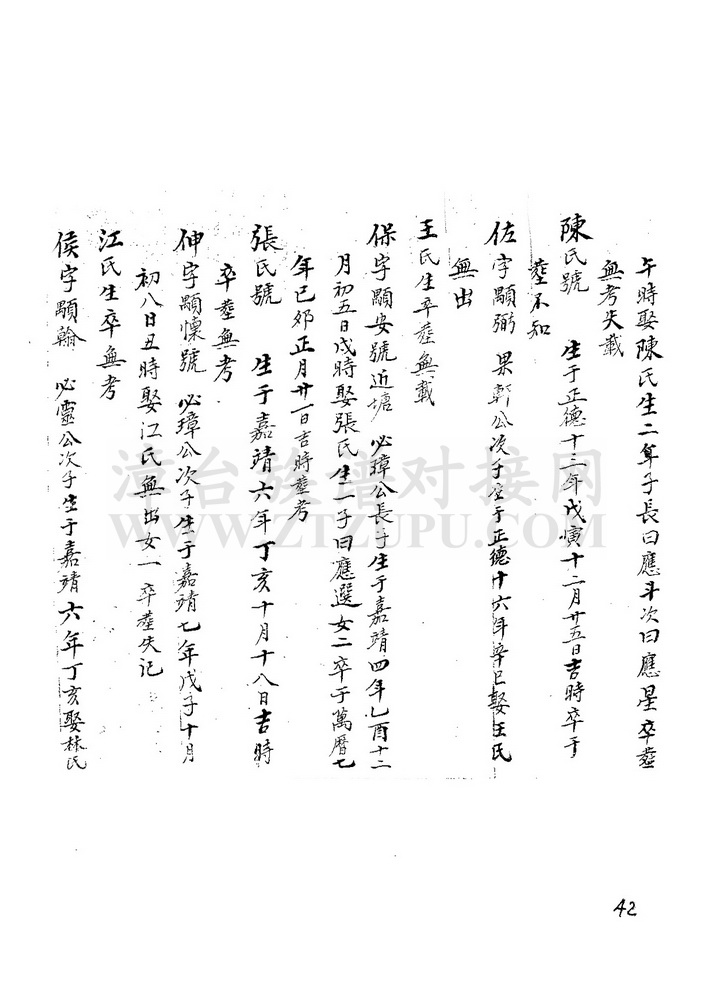 午時娶陳氏生二子長曰應斗次曰應星卒塟
無考失載
陳氏號 生于正德十三年戊寅十二月廿五日吉時卒于
塟不知
佐字顯弼 果軒公次子生于正德十六年辛巳娶王氏
無出
王氏生卒塟無載
保字顯安號近塘 必璋公長子生于嘉靖四年乙酉十二
月初五日戌時娶張氏生一子曰應選女二卒于萬曆七
年己卯正月廿一日吉時塟考
張氏號 生于嘉靖六年丁亥十月十八日吉時
卒塟無考
伸字顯懷號 必璋公次子生于嘉靖七年戊子十月
初八日丑時娶江氏無出女一卒塟失记
江氏生卒無考
侯字顯翰 必靈公次子生于嘉靖六年丁亥娶林氏
漳台族譜对接网
WWW.ZTZUPU.COM
42